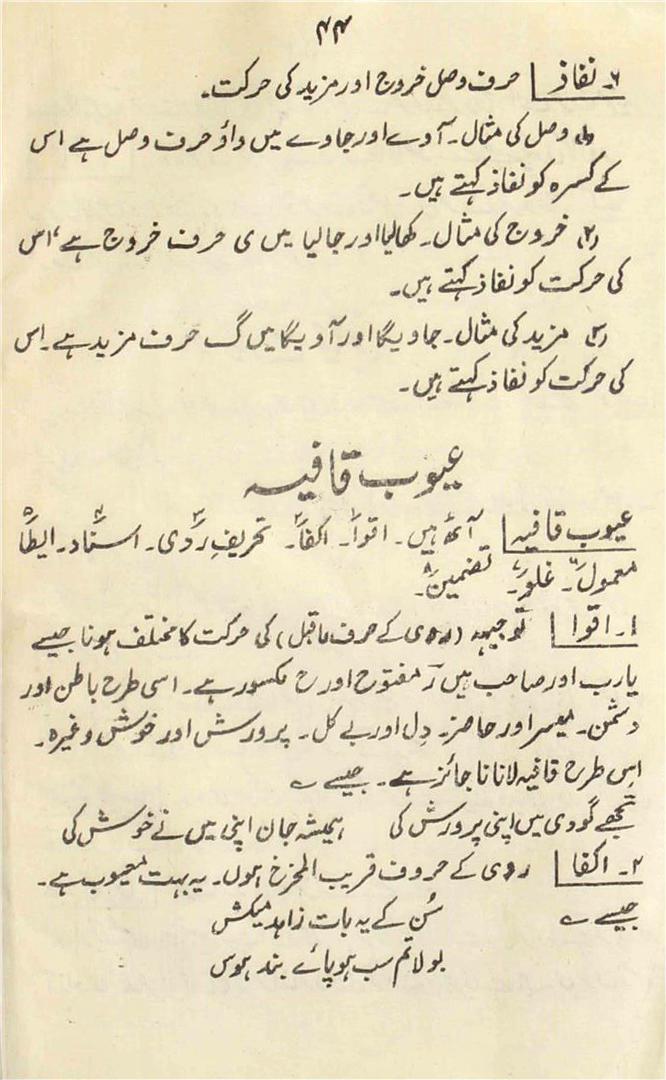 ۴۴
۶۔ نفاذ حرف وصل خروج اور مزید کی حرکت۔
(۱) وصل کی مثال۔ آوے اور جاوے میں واؤ حرف وصل ہے اس
کے کسرہ کو نفاذ کہتے ہیں۔
(۲) خروج کی مثال۔ کھالیا اور جالیا میں ی حرف خروج ہے، اس
کی حرکت کو نفاذ کہتے ہیں۔
(۳) مزید کی مثال۔ جاویگا اور آویگا میں گ حرف مزید ہے۔ اس
کی حرکت کو نفاذ کہتے ہیں۔
عیوب قافیہ
عیوب قافیہ آٹھ ہیں۔ اقوا۱۔ اکفا۲۔ تحریفِ رَوی۳۔ اسناد۴۔ ایطا۵
معمول۶۔ غلو۷۔ تضمین۸۔
۱۔ اقوا توجیہہ (روی کے حرف ماقبل) کی حرکت کا مختلف ہونا جیسے
یارب اور صاحب میں رَ مفتوح اور ح مکسور ہے۔ اسی طرح باطن اور
دشمن۔ میسر اور حاضر۔ دِل اور بے کل۔ پرورش اور خوش وغیرہ۔
اس طرح قافیہ لانا ناجائز ہے۔ جیسے ؎
تجھے گودی میں اپنی پرورش کی ہمیشہ جان اپنی میں نے خوش کی
۲۔ اکفا روی کے حروف قریب المخرج ہوں۔ یہ بہت معیوب ہے۔
جیسے ؎ سُن کے یہ بات زاہد میکش
بولا تم سب ہو پائے بند ہوس